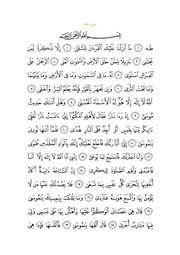 سورة طه
بِسْمِ اللَّهِ الرَّحْمَٰنِ الرَّحِيمِ
طه ﴿١﴾ مَا أَنزَلْنَا عَلَيْكَ الْقُرْآنَ لِتَشْقَىٰ ﴿٢﴾ إِلَّا تَذْكِرَةً لِّمَن
يَخْشَىٰ ﴿٣﴾ تَنزِيلًا مِّمَّنْ خَلَقَ الْأَرْضَ وَالسَّمَاوَاتِ الْعُلَى ﴿٤﴾ الرَّحْمَٰنُ عَلَى
الْعَرْشِ اسْتَوَىٰ ﴿٥﴾ لَهُ مَا فِي السَّمَاوَاتِ وَمَا فِي الْأَرْضِ وَمَا بَيْنَهُمَا
وَمَا تَحْتَ الثَّرَىٰ ﴿٦﴾ وَإِن تَجْهَرْ بِالْقَوْلِ فَإِنَّهُ يَعْلَمُ السِّرَّ وَأَخْفَى ﴿٧﴾
اللَّهُ لَا إِلَٰهَ إِلَّا هُوَ لَهُ الْأَسْمَاءُ الْحُسْنَىٰ ﴿٨﴾ وَهَلْ أَتَاكَ حَدِيثُ
مُوسَىٰ ﴿٩﴾ إِذْ رَأَىٰ نَارًا فَقَالَ لِأَهْلِهِ امْكُثُوا إِنِّي آنَسْتُ نَارًا لَّعَلِّي
آتِيكُم مِّنْهَا بِقَبَسٍ أَوْ أَجِدُ عَلَى النَّارِ هُدًى ﴿١٠﴾ فَلَمَّا أَتَاهَا نُودِيَ
يَا مُوسَىٰ ﴿١١﴾ إِنِّي أَنَا رَبُّكَ فَاخْلَعْ نَعْلَيْكَ إِنَّكَ بِالْوَادِ الْمُقَدَّسِ طُوًى
﴿١٢﴾ وَأَنَا اخْتَرْتُكَ فَاسْتَمِعْ لِمَا يُوحَىٰ ﴿١٣﴾ إِنَّنِي أَنَا اللَّهُ لَا إِلَٰهَ إِلَّا أَنَا
فَاعْبُدْنِي وَأَقِمِ الصَّلَاةَ لِذِكْرِي ﴿١٤﴾ إِنَّ السَّاعَةَ آتِيَةٌ أَكَادُ
أُخْفِيهَا لِتُجْزَىٰ كُلُّ نَفْسٍ بِمَا تَسْعَىٰ ﴿١٥﴾ فَلَا يَصُدَّنَّكَ عَنْهَا مَن لَّا
يُؤْمِنُ بِهَا وَاتَّبَعَ هَوَاهُ فَتَرْدَىٰ ﴿١٦﴾ وَمَا تِلْكَ بِيَمِينِكَ يَا مُوسَىٰ
﴿١٧﴾ قَالَ هِيَ عَصَايَ أَتَوَكَّأُ عَلَيْهَا وَأَهُشُّ بِهَا عَلَىٰ غَنَمِي وَلِيَ
فِيهَا مَآرِبُ أُخْرَىٰ ﴿١٨﴾ قَالَ أَلْقِهَا يَا مُوسَىٰ ﴿١٩﴾ فَأَلْقَاهَا فَإِذَا هِيَ